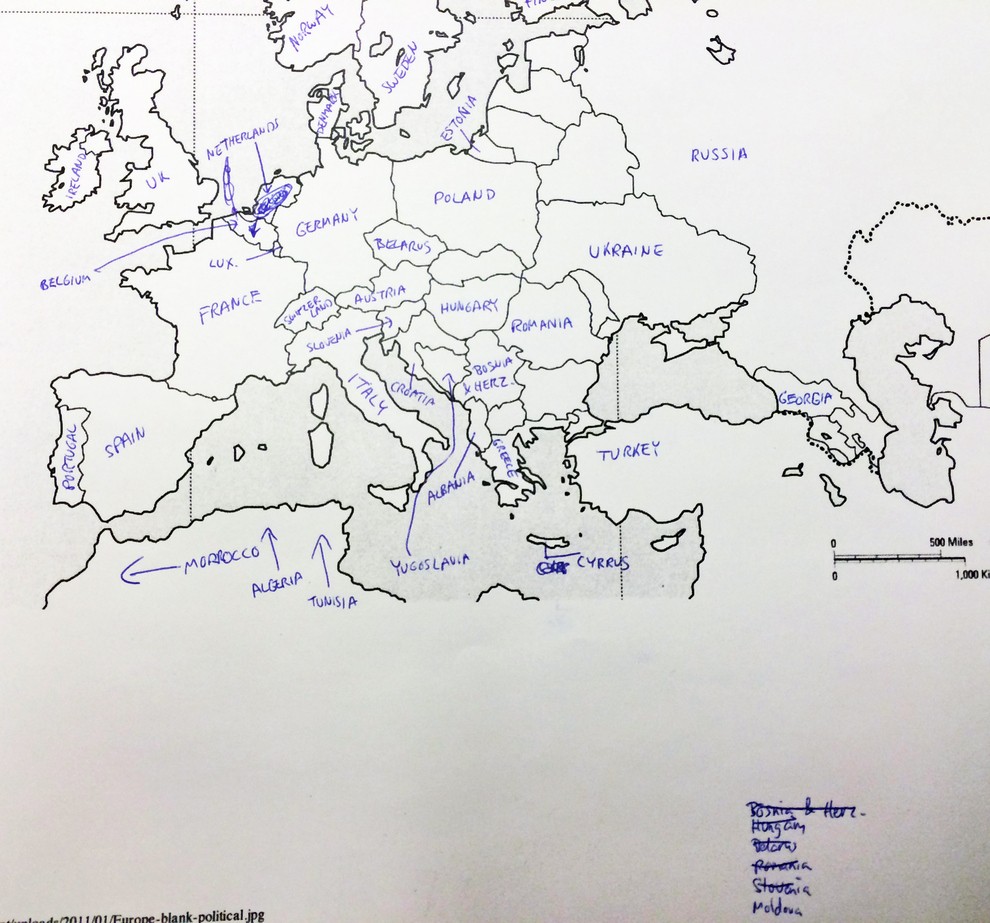 NORWAY
SWEDEN
DENMARK
ESTONIA
NETHERLANDS
RUSSIA
IRELAND
UK
POLAND
GERMANY
BELARUS
UKRAINE
BELGIUM
LUX.
FRANCE
SWITZER
LAND
AUSTRIA
HUNGARY
ROMANIA
SLOVENIA
BOSNIA
& HERZ.
ITALY
CROATIA
GEORGIA
PORTUGAL
SPAIN
GREECE
TURKEY
ALBANIA
0 500 Miles
0 1,000 Ki
MORROCCO
ALGERIA
TUNISIA
YUGOSLAVIA
CYRRUS
Bosnia & Herz.
Hungary
Belarus
Romania
Slovenia
Moldova
/uploads/2011/01/Europe-blank-political.jpg